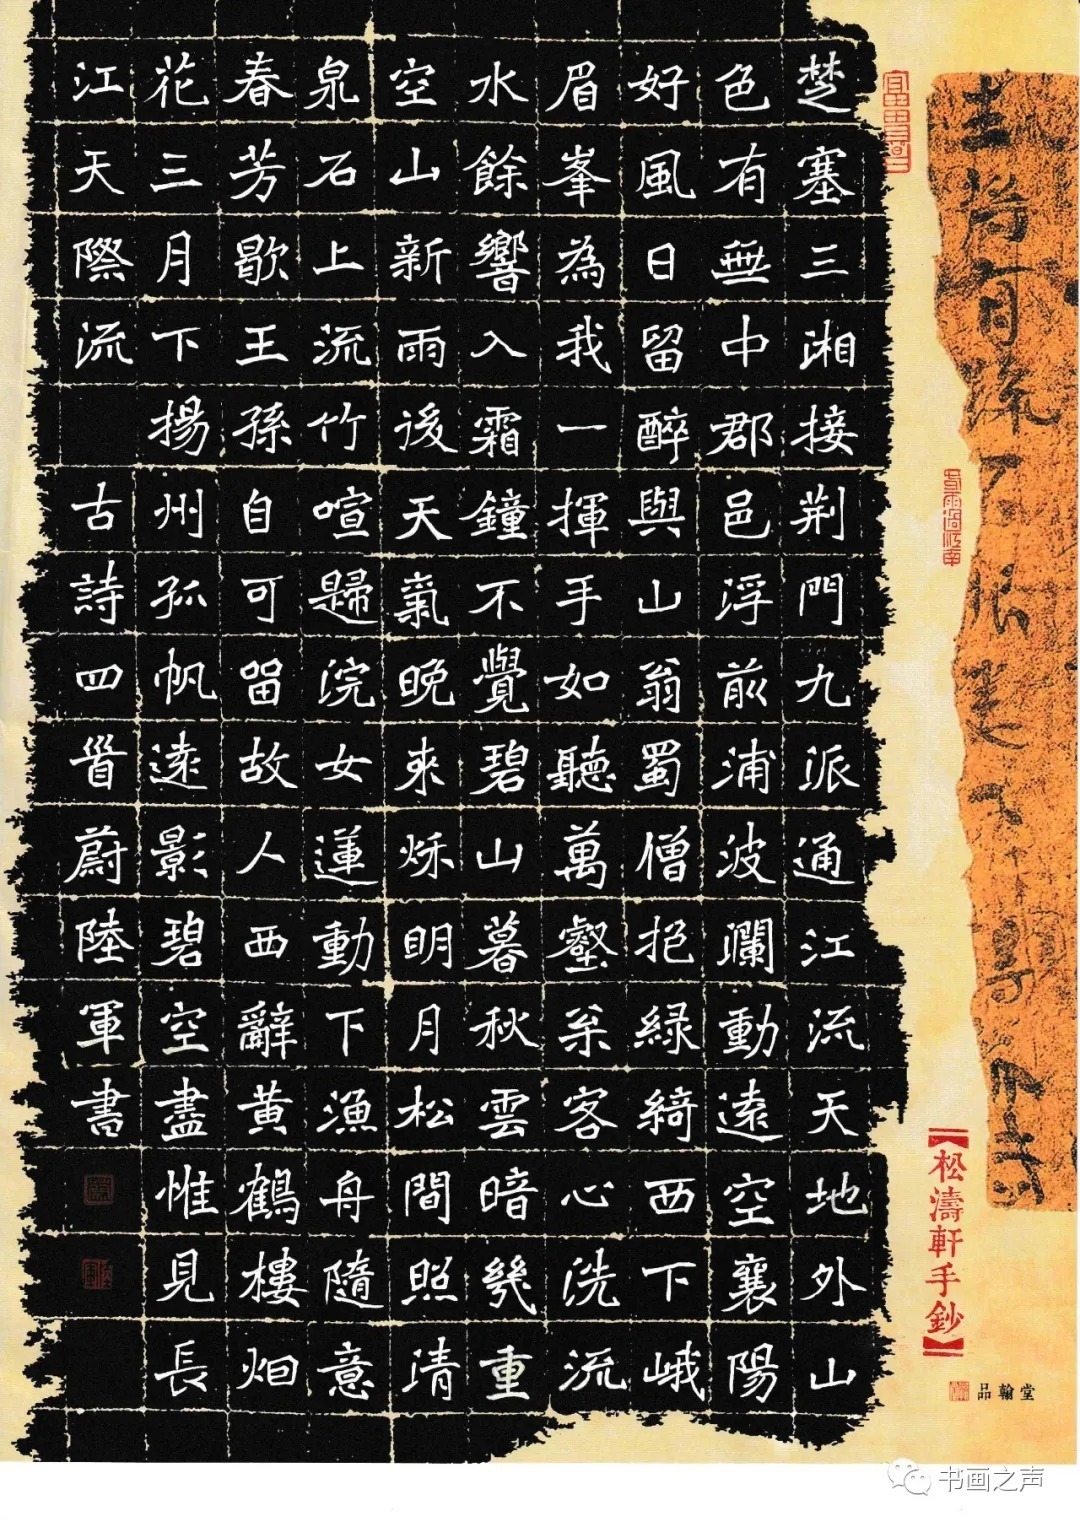 楚塞三湘接荆門九派通江流天地外山
色有無中郡邑浮前浦波瀾動遠空襄陽
好風日留醉與山翁蜀僧抱緑綺西下峨
眉峯為我一揮手如聽萬壑枀客心洗流
水餘響入霜鐘不覺碧山暮秋雲暗幾重
空山新雨後天氣晚来秌明月松間照清
泉石上流竹喧歸浣女蓮動下漁舟隨意
春芳歇王孫自可留故人西辭黄鶴樓烟
花三月下揚州孤帆遠影碧空盡惟見長
江天際流 古詩四首蔚陸軍書
【松濤軒手鈔】
品翰堂
书画之声